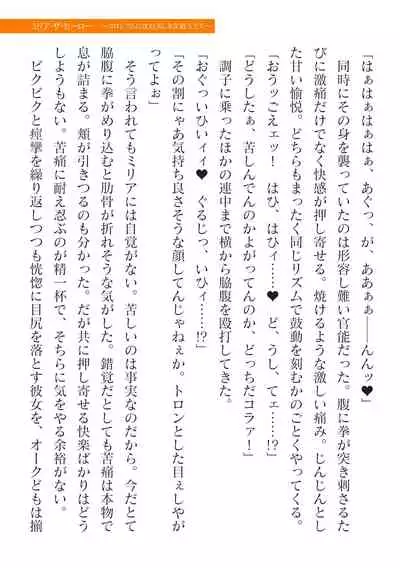 「はぁはぁはぁはぁ、あぐっ、が、ああぁぁ――んんッ♥」
同時にその身を襲っていたのは形容し難い官能だった。腹に拳が突き刺さるた
びに激痛だけでなく快感が押し寄せる。焼けるような激しい痛み。じんじんとし
た甘い愉悦。どちらもまったく同じリズムで鼓動を刻むかのごとくやってくる。
「おうッごえェッ！　はひ、はひィ……♥　ど、うし、てェ……!?」
「どうしたぁ、苦しんでんのかよがってんのか、どっちだコラァ！」
調子に乗ったほかの連中まで横から脇腹を殴打してきた。
「おぐっいひいィィ♥　ぐるじっ、いひィ……!?」
「その割にゃあ気持ち良さそうな顔してんじゃねぇか。トロンとした目ぇしやが
ってよぉ」
そう言われてもミリアには自覚がない。苦しいのは事実なのだから。今だとて
脇腹に拳がめり込むと肋骨が折れそうな気がした。錯覚だとしても苦痛は本物で
息が詰まる。頬が引きつるのも分かった。だが共に押し寄せる快楽ばかりはどう
しようもない。苦痛に耐え忍ぶのが精一杯で、そちらに気をやる余裕がない。
ビクビクと痙攣を繰り返しつつも恍惚に目尻を落とす彼女を、オークどもは揃